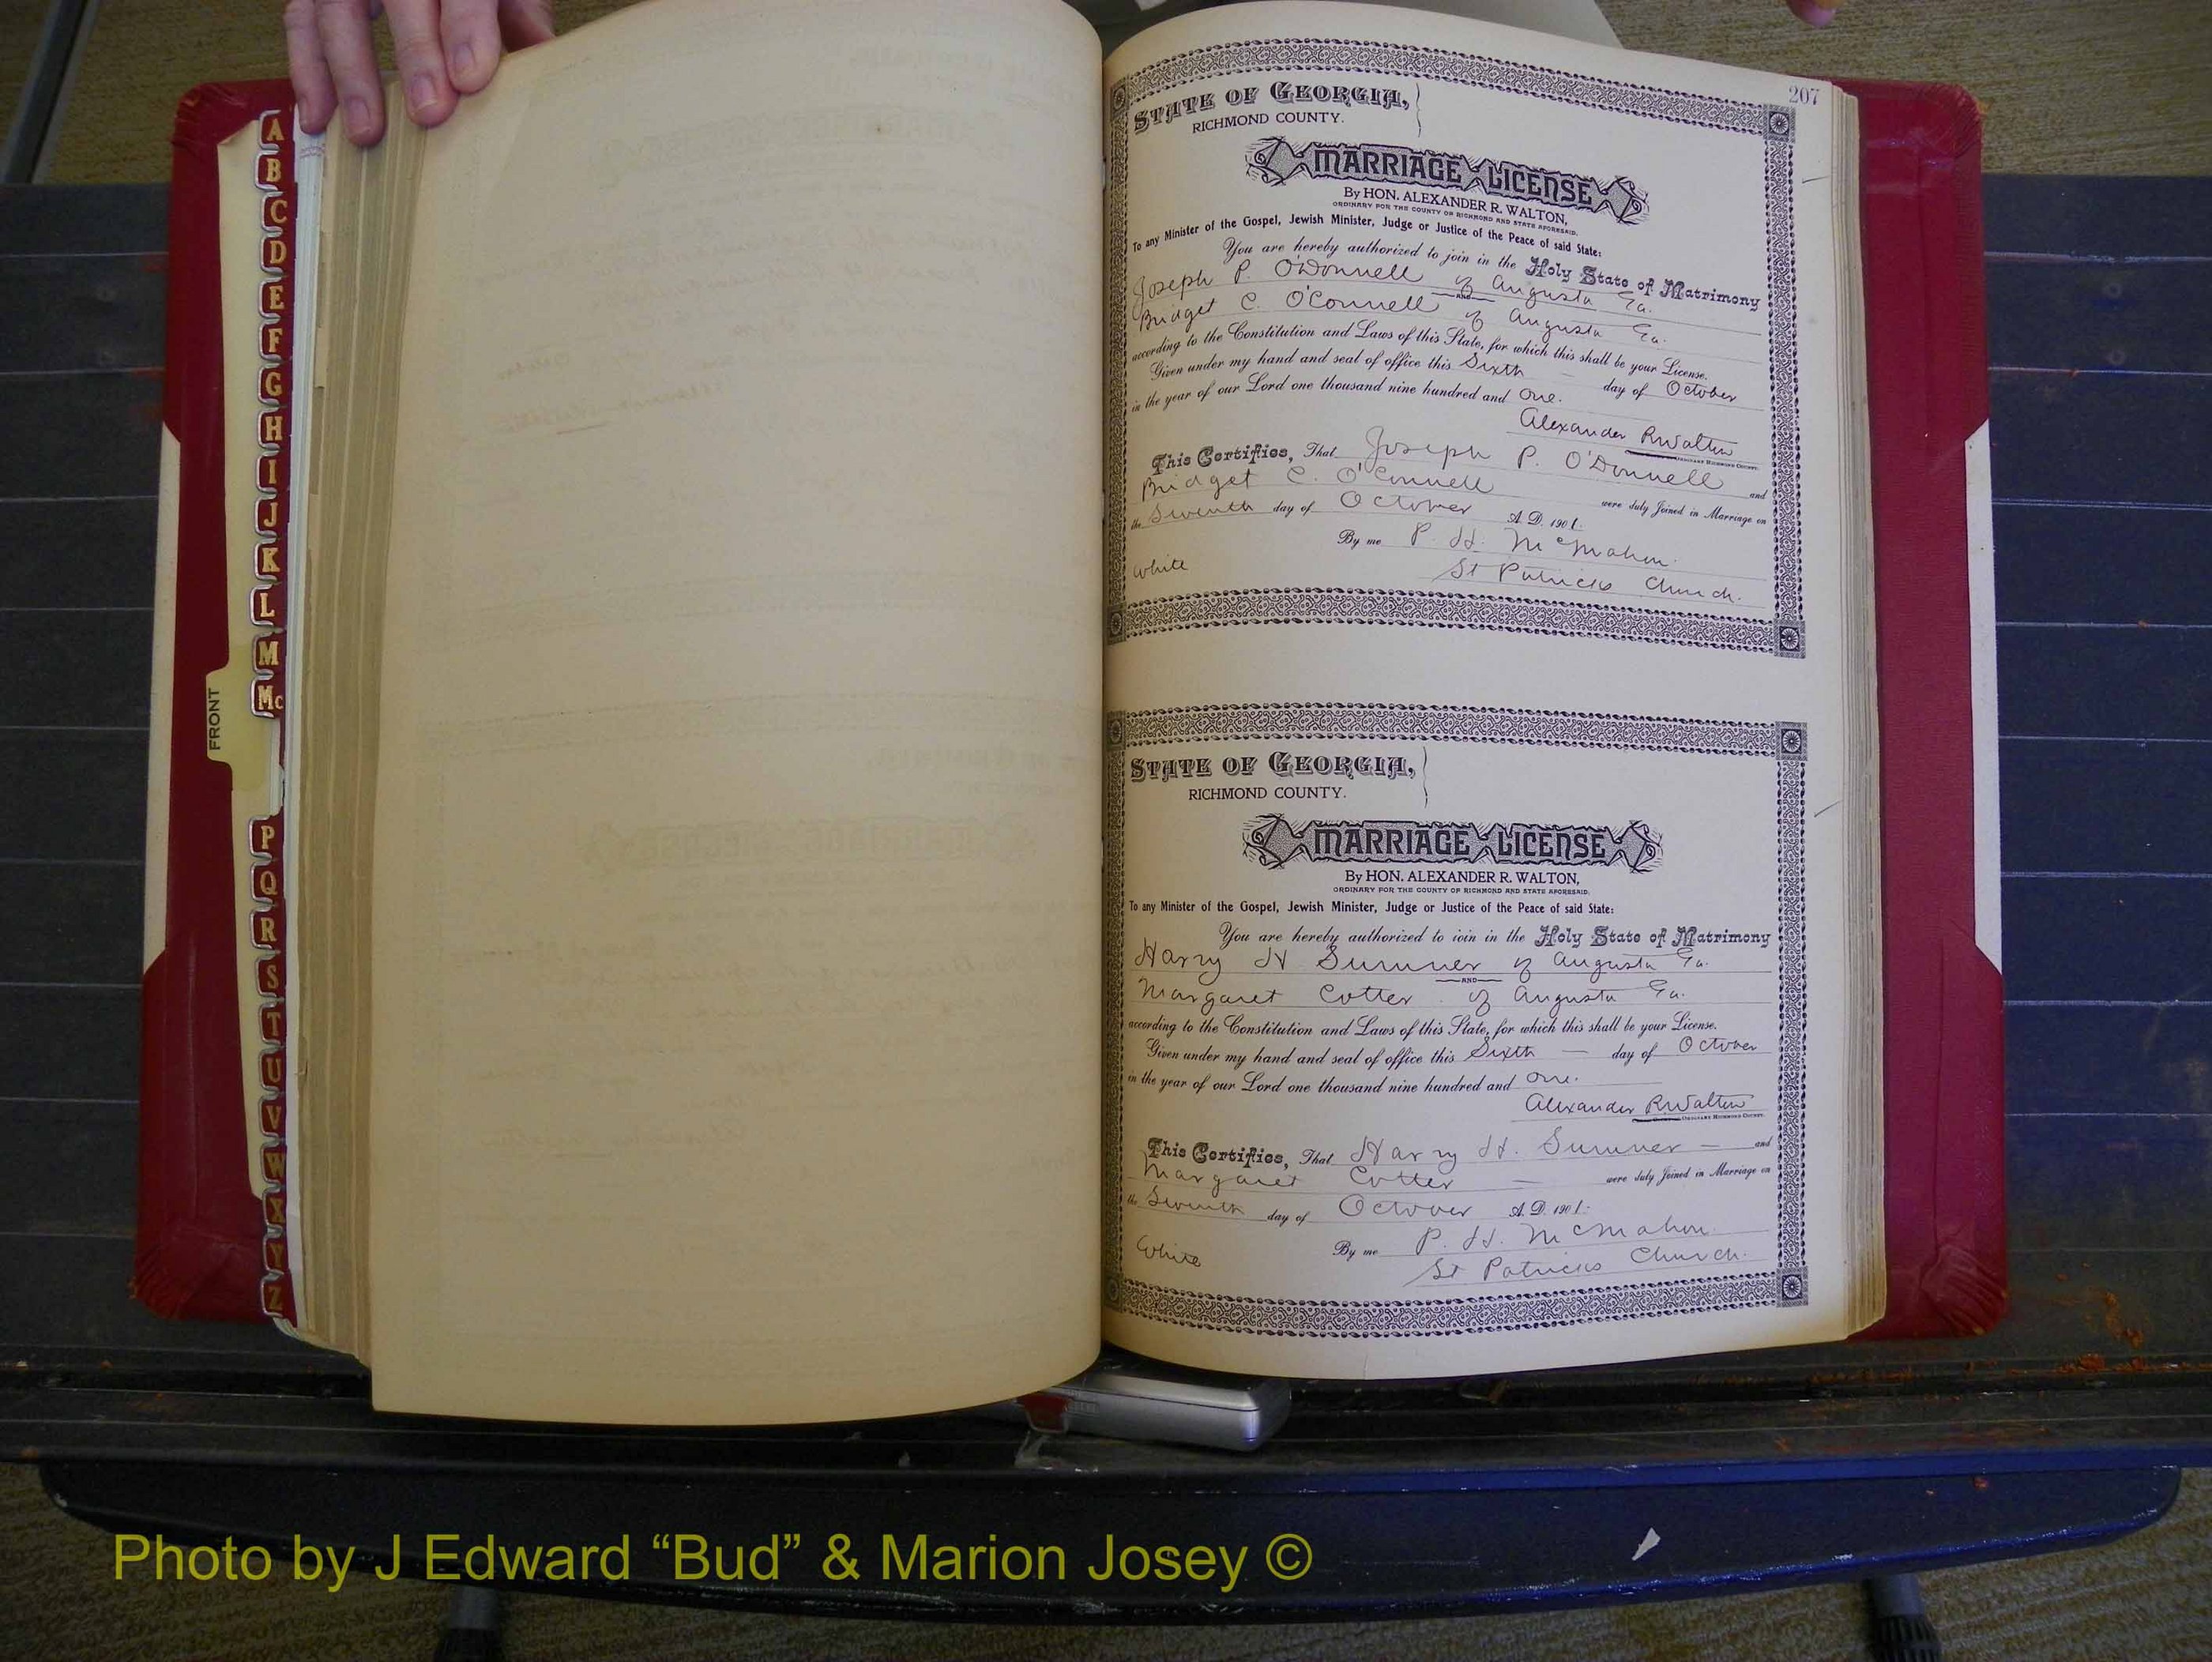 A
B
C
D
E
F
G
H
I
J
K
L
M
Mc
FRONT
P
Q
R
S
T
U
V
W
X
Y
Z
207
STATE OF GEORGIA,
RICHMOND COUNTY.
MARRIAGE LICENSE
By HON. ALEXANDER R. WALTON,
ORDINARY FOR THE COUNTY OF RICHMOND AND STATE AFORESAID.
To any Minister of the Gospel, Jewish Minister, Judge or Justice of the Peace of said State:
You are hereby authorized to join in the Holy State of Matrimony
Joseph P. O'Donnell of Augusta Ga.
AND
Bridget C. O'Connell of Augusta Ga.
according to the Constitution and Laws of this State, for which this shall be your License.
Given under my hand and seal of office this Sixth day of October
in the year of our Lord one thousand nine hundred and one.
Alexander R Walton
ORDINARY RICHMOND COUNTY.
This Certifies, That Joseph P. O'Donnell and
Bridget C. O'Connell were duly Joined in Marriage on
the Seventh day of October A. D. 1901.
By me P. H. McMahon.
White St Patricks Church.
STATE OF GEORGIA,
RICHMOND COUNTY.
MARRIAGE LICENSE
By HON. ALEXANDER R. WALTON,
ORDINARY FOR THE COUNTY OF RICHMOND AND STATE AFORESAID.
To any Minister of the Gospel, Jewish Minister, Judge or Justice of the Peace of said State:
You are hereby authorized to join in the Holy State of Matrimony
Harry H Sumner of Augusta Ga.
AND
Margaret Cotter of Augusta Ga.
according to the Constitution and Laws of this State, for which this shall be your License.
Given under my hand and seal of office this Sixth — day of October
in the year of our Lord one thousand nine hundred and one.
Alexander R Walton
ORDINARY RICHMOND COUNTY.
This Certifies, That Harry H. Sumner — and
Margaret Cotter — were duly Joined in Marriage on
the Seventh day of October A. D. 1901.
By me P. H. McMahon.
White St Patricks Church.
Photo by J Edward “Bud” & Marion Josey ©